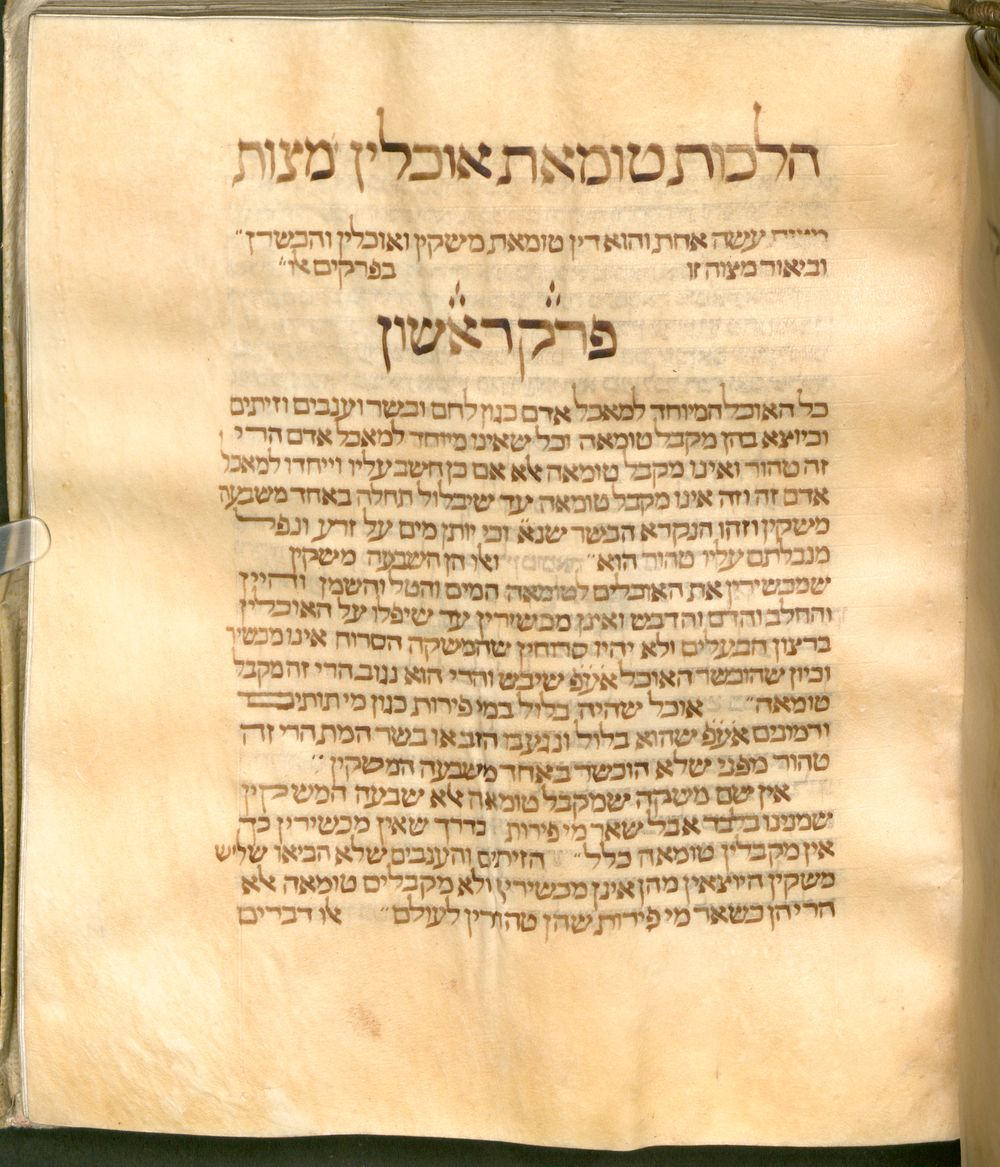 הלכות טומאת אוכלין מצות
מצות עשה אחת והוא דין טומאת משקין ואוכלין והכשרן״
וביאור מצוה זו בפרקים אלו״
פרק ראשון
כל האוכל המיוחד למאכל אדם כגון לחם ובשר וענבים וזיתים
וכיוצא בהן מקבל טומאה וכל שאינו מיוחד למאכל אדם הרי
זה טהור ואינו מקבל טומאה אלא אם כן חשב עליו וייחדו למאכל
אדם זה וזה אינו מקבל טומאה עד שיבלול תחלה באחד משבעה
משקין וזהו הנקרא הכשר שנא׳ וכי יותן מים על זרע ונפל
מנבלתם עליו טהור הוא״ ואלו הן השבעה משקין
שמכשירין את האוכלים לטומאה המים והטל והשמן והיין
והחלב והדם והדבש ואינן מכשירין עד שיפלו על האוכלין
ברצון הבעלים ולא יהיו סרוחין שהמשקה הסרוח אינו מכשיר
וכיון שהוכשר האוכל אע״פ שיבש והרי הוא נגוב הרי זה מקבל
טומאה״ אוכל שהיה בלול במי פירות כגון מי תותים
ורמונים אע״פ שהוא בלול ונגעבו הזב או בשר המת הרי זה
טהור מפני שלא הוכשר באחד משבעה המשקין״
אין שם משקה שמקבל טומאה אלא שבעה המשקין
שמנינו בלבד אבל שאר מי פירות כדרך שאין מכשירין כך
אין מקבלין טומאה כלל״ הזיתים והענבים שלא הביאו שליש
משקין היוצאין מהן אינן מכשירין ולא מקבלים טומאה אלא
הרי הן כשאר מי פירות שהן טהורין לעולם״ אלו דברים